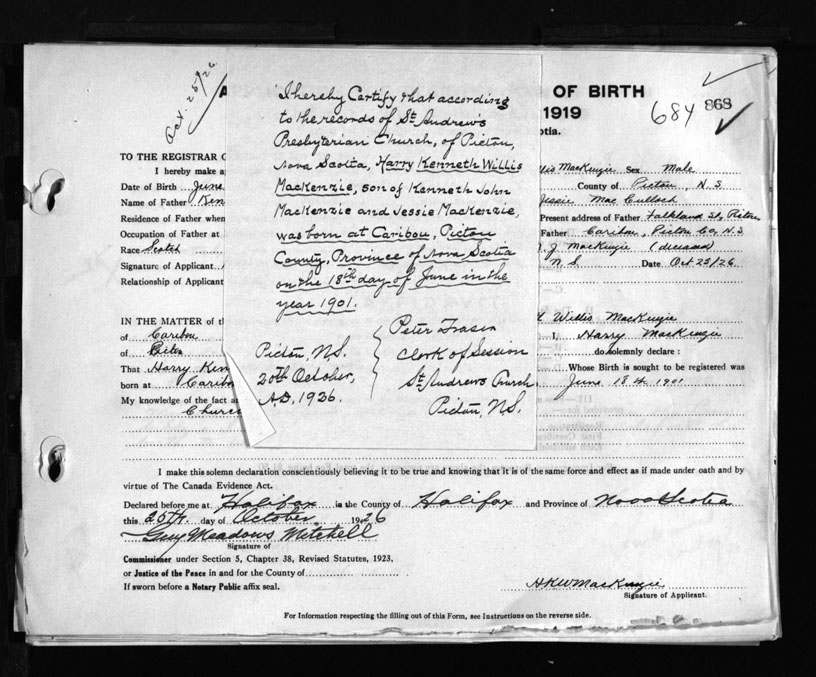 Oct. 25/26
OF BIRTH
1919
684 868
otia.
I hereby Certify that according
to the records of St Andrew's
Presbyterian Church, of Pictou,
Nova Scotia, Harry Kenneth Willis
MacKenzie, son of Kenneth John
MacKenzie and Jessie MacKenzie,
was born at Caribou, Pictou
County, Province of Nova Scotia
on the 18th day of June in the
year 1901.
Pictou, N.S.
20th October,
A.D. 1926.
Peter Fraser
Clerk of Session
St Andrews Church
Pictou, N.S.
TO THE REGISTRAR
I hereby make a llis MacKenzie Sex Male
Date of Birth June County of Pictou N.S
Name of Father Ken Jessie MacCulloch
Residence of Father when Present address of Father Falkland St, Pictou
Occupation of Father at Father Caribou, Pictou Co, N.S
Race Scotch J. MacKenzie (deceased)
Signature of Applicant N.S. Date Oct 25/26
Relationship of Applicant
IN THE MATTER of t Willis MacKenzie
of Caribou I, Harry MacKenzie
of Pictou do solemnly declare :
That Harry Ken Whose Birth is sought to be registered was
born at Caribou June 18th 1901
My knowledge of the fact a
Church
I make this solemn declaration conscientiously believing it to be true and knowing that it is of the same force and effect as if made under oath and by
virtue of The Canada Evidence Act.
Declared before me at Halifax in the County of Halifax and Province of Nova Scotia
this 25th. day of October 1926
Guy Meadows Mitchell
Signature of
Commissioner under Section 5, Chapter 38, Revised Statutes, 1923.
or Justice of the Peace in and for the County of
If sworn before a Notary Public affix seal.
HKWMacKenzie
Signature of Applicant.
For Information respecting the filling out of this Form, see Instructions on the reverse side.